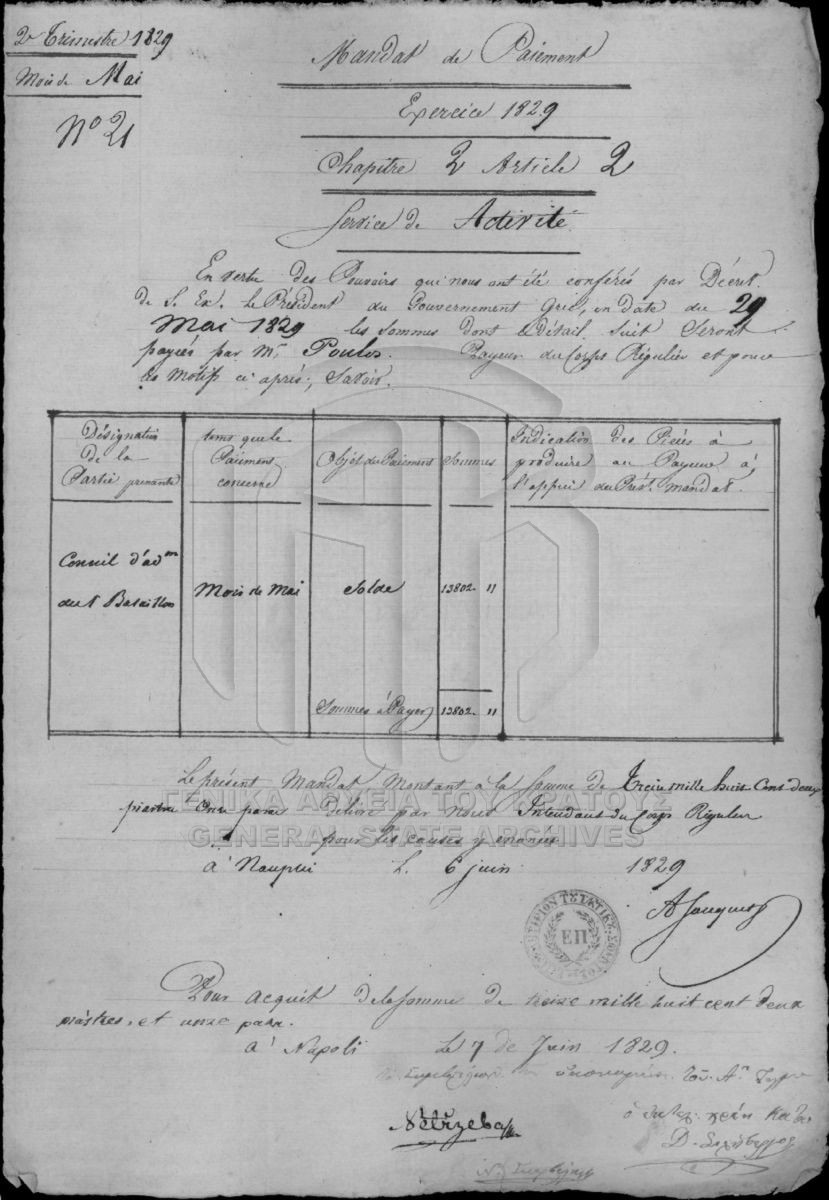 2e Trimestre 1829
Mois de Mai
No 21
Mandat de Paiement
Exercice 1829
Chapitre 2 Article 2
Service de Activité
En vertu des Pouvoirs qui nous ont été conférés par Décret
de S. Ex. le Président du Gouvernement Grec, en date du 29
Mai 1829 les sommes dont le détail suit seront
payées par Mr. Poulos. Payeur du Corps Régulier et pour
les Motifs ci après, Savoir.
Désignation de la Partie prenante
tems que le Paiement concerne
Objet du Paiement
Sommes
Indication des Pièces à produire au Payeur à l'appui du Prést. mandat.
Conseil d'adon
du 1 Bataillon
Mois de Mai
Solde
13802 11
Sommes à Payer
13802 11
Le présent Mandat Montant à la somme de treize mille huit Cent deux
piastres Onze paras délivré par nous Intendant du Corps Régulier
pour les causes y énoncés
à Nauplie L. 6 juin 1829
ΓΕΝΙΚΑ ΑΡΧΕΙΑ ΤΟΥ ΚΡΑΤΟΥΣ
GENERAL STATE ARCHIVES
ΕΠ
Pour acquit de la somme de treize mille huit cent deux
piastres, et onze para.
à Napoli Le 7 de Juin 1829.